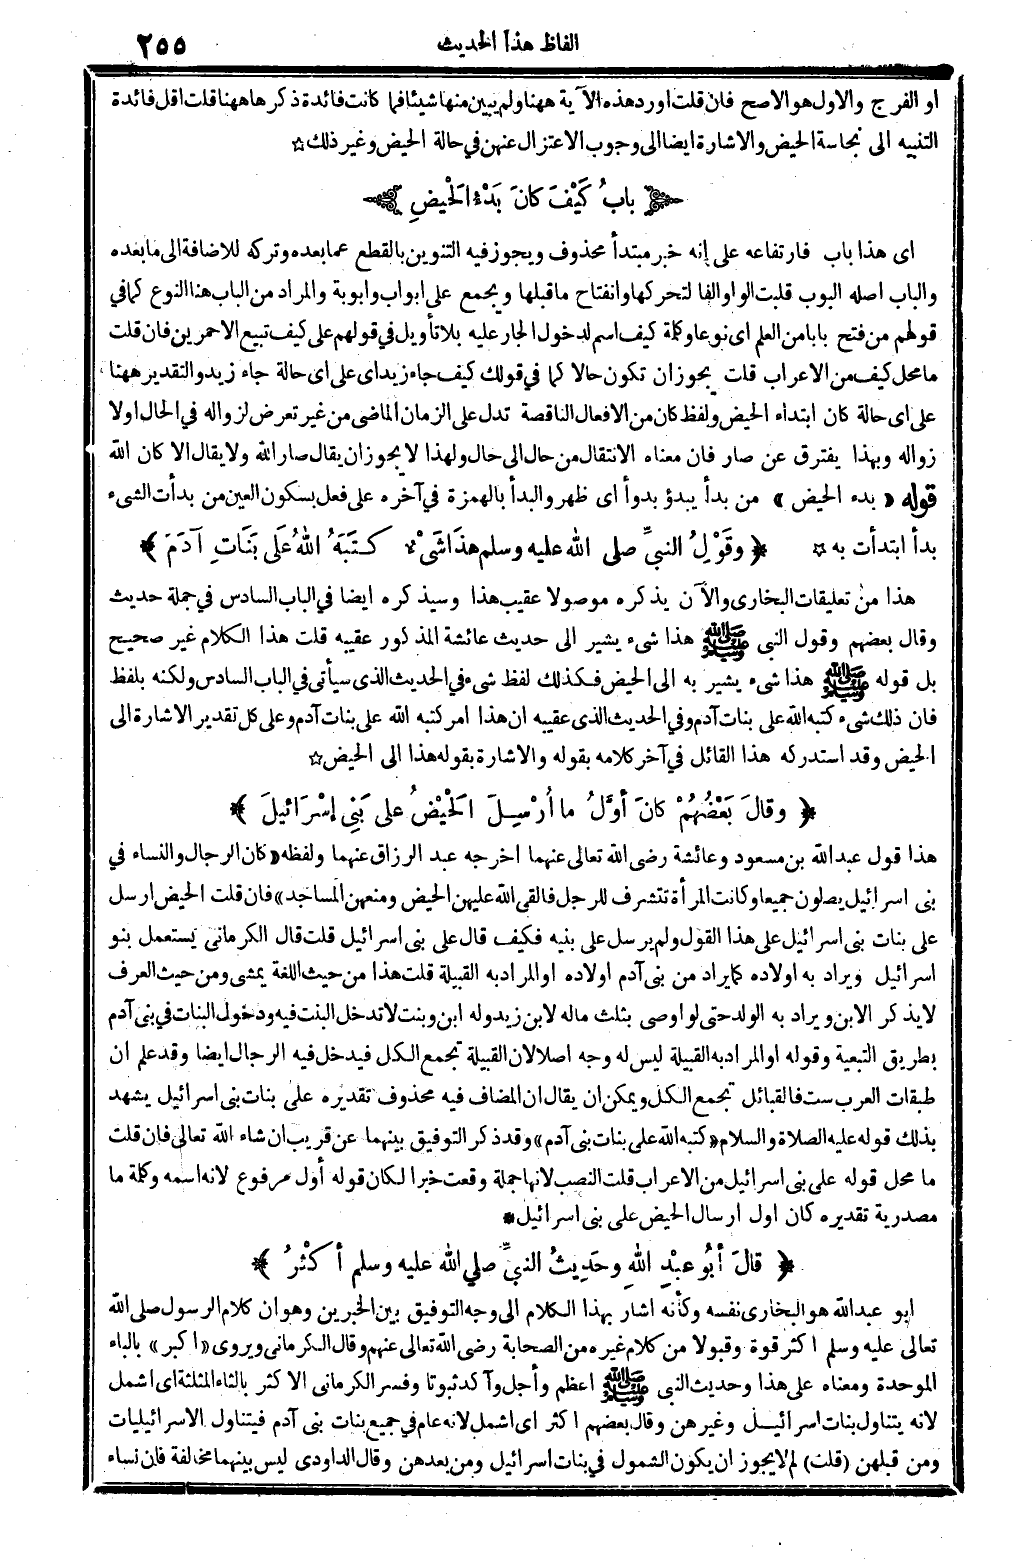 الفاظ هذا الحديث ٢٥٥
او الفرج والاول هو الاصح فان قلت اورد هذه الآية ههنا ولم يبين منها شيئا فما كانت فائدة ذكرها ههنا قلت اقل فائدة
التنبيه الى نجاسة الحيض والاشارة ايضا الى وجوب الاعتزال عنهن في حالة الحيض وغير ذلك ☆
بابُ كَيْفَ كانَ بَدْءُ الْحَيْضِ
اى هذا باب فارتفاعه على إنه خبر مبتدأ محذوف ويجوز فيه التنوين بالقطع عما بعده وتركه للاضافة الى ما بعده
والباب اصله البوب قلبت الواو الفا لتحركها وانفتاح ما قبلها ويجمع على ابواب وابوبة والمراد من الباب هنا النوع كما في
قولهم من فتح بابا من العلم اى نوعا وكلمة كيف اسم لدخول الجار عليه بلا تأويل في قولهم على كيف تبيع الاحمرين فان قلت
ما محل كيف من الاعراب قلت يجوز ان تكون حالا كما في قولك كيف جاء زيد اى على اى حالة جاء زيد والتقدير ههنا
على اى حالة كان ابتداء الحيض ولفظ كان من الافعال الناقصة تدل على الزمان الماضى من غير تعرض لزواله في الحال او لا
زواله وبهذا يفترق عن صار فان معناه الانتقال من حال الى حال ولهذا لا يجوز ان يقال صار الله ولا يقال الا كان الله
قوله « بدء الحيض » من بدأ يبدؤ بدوأ اى ظهر والبدأ بالهمزة في آخره على فعل بسكون العين من بدأت الشىء
بدأ ابتدأت به ☆ ﴿ وقَوْلِ النبيِّ صلى الله عليه وسلم هذَا شَىْءٌ كَتَبَهُ اللهُ عَلَى بَنَاتِ آدَمَ ﴾
هذا من تعليقات البخارى والآن يذكره موصولا عقيب هذا وسيذكره ايضا في الباب السادس في جملة حديث
وقال بعضهم وقول النبى ﷺ هذا شىء يشير الى حديث عائشة المذكور عقيبه قلت هذا الكلام غير صحيح
بل قوله ﷺ هذا شىء يشير به الى الحيض فكذلك لفظ شىء في الحديث الذى سيأتى في الباب السادس ولكنه بلفظ
فان ذلك شىء كتبه الله على بنات آدم وفي الحديث الذى عقيبه ان هذا امر كتبه الله على بنات آدم وعلى كل تقدير الاشارة الى
الحيض وقد استدركه هذا القائل في آخر كلامه بقوله والاشارة بقوله هذا الى الحيض ☆
﴿ وقالَ بَعْضُهُمْ كانَ أوَّلُ ما أُرْسِلَ الْحَيْضُ على بَنِى إسْرَائيلَ ﴾
هذا قول عبدالله بن مسعود وعائشة رضى الله تعالى عنهما اخرجه عبد الرزاق عنهما ولفظه « كان الرجال والنساء في
بنى اسرائيل يصلون جميعا وكانت المرأة تتشرف للرجل فالقى الله عليهن الحيض ومنعهن المساجد » فان قلت الحيض ارسل
على بنات بنى اسرائيل على هذا القول ولم يرسل على بنيه فكيف قال على بنى اسرائيل قلت قال الكرمانى يستعمل بنو
اسرائيل ويراد به اولاده كما يراد من بنى آدم اولاده او المراد به القبيلة قلت هذا من حيث اللغة يمشى ومن حيث العرف
لا يذكر الابن ويراد به الولد حتى لو اوصى بثلث ماله لابن زيد وله ابن وبنت لا تدخل البنت فيه ودخول البنات في بنى آدم
بطريق التبعية وقوله او المراد به القبيلة ليس له وجه اصلا لان القبيلة تجمع الكل فيدخل فيه الرجال ايضا وقد علم ان
طبقات العرب ست فالقبائل تجمع الكل ويمكن ان يقال ان المضاف فيه محذوف تقديره على بنات بنى اسرائيل يشهد
بذلك قوله عليه الصلاة والسلام « كتبه الله على بنات بنى آدم » وقد ذكر التوفيق بينهما عن قريب ان شاء الله تعالى فان قلت
ما محل قوله على بنى اسرائيل من الاعراب قلت النصب لانها جملة وقعت خبرا لكان قوله أول مرفوع لانه اسمه وكلمة ما
مصدرية تقديره كان اول ارسال الحيض على بنى اسرائيل *
﴿ قالَ أبُو عبْدِ اللهِ وحَدِيثُ النبيِّ صلي الله عليه وسلم أكْثرُ ﴾
ابو عبدالله هو البخارى نفسه وكأنه اشار بهذا الكلام الى وجه التوفيق بين الخبرين وهو ان كلام الرسول صلى الله
تعالى عليه وسلم اكثر قوة وقبولا من كلام غيره من الصحابة رضى الله تعالى عنهم وقال الكرمانى ويروى « اكبر » بالباء
الموحدة ومعناه على هذا وحديث النبى ﷺ اعظم وأجل وآكد ثبوتا وفسر الكرمانى الاكثر بالثاء المثلثة اى اشمل
لانه يتناول بنات اسرائيل وغيرهن وقال بعضهم اكثر اى اشمل لانه عام في جميع بنات بنى آدم فيتناول الاسرائيليات
ومن قبلهن (قلت) لم لا يجوز ان يكون الشمول في بنات اسرائيل ومن بعدهن وقال الداودى ليس بينهما مخالفة فان نساء